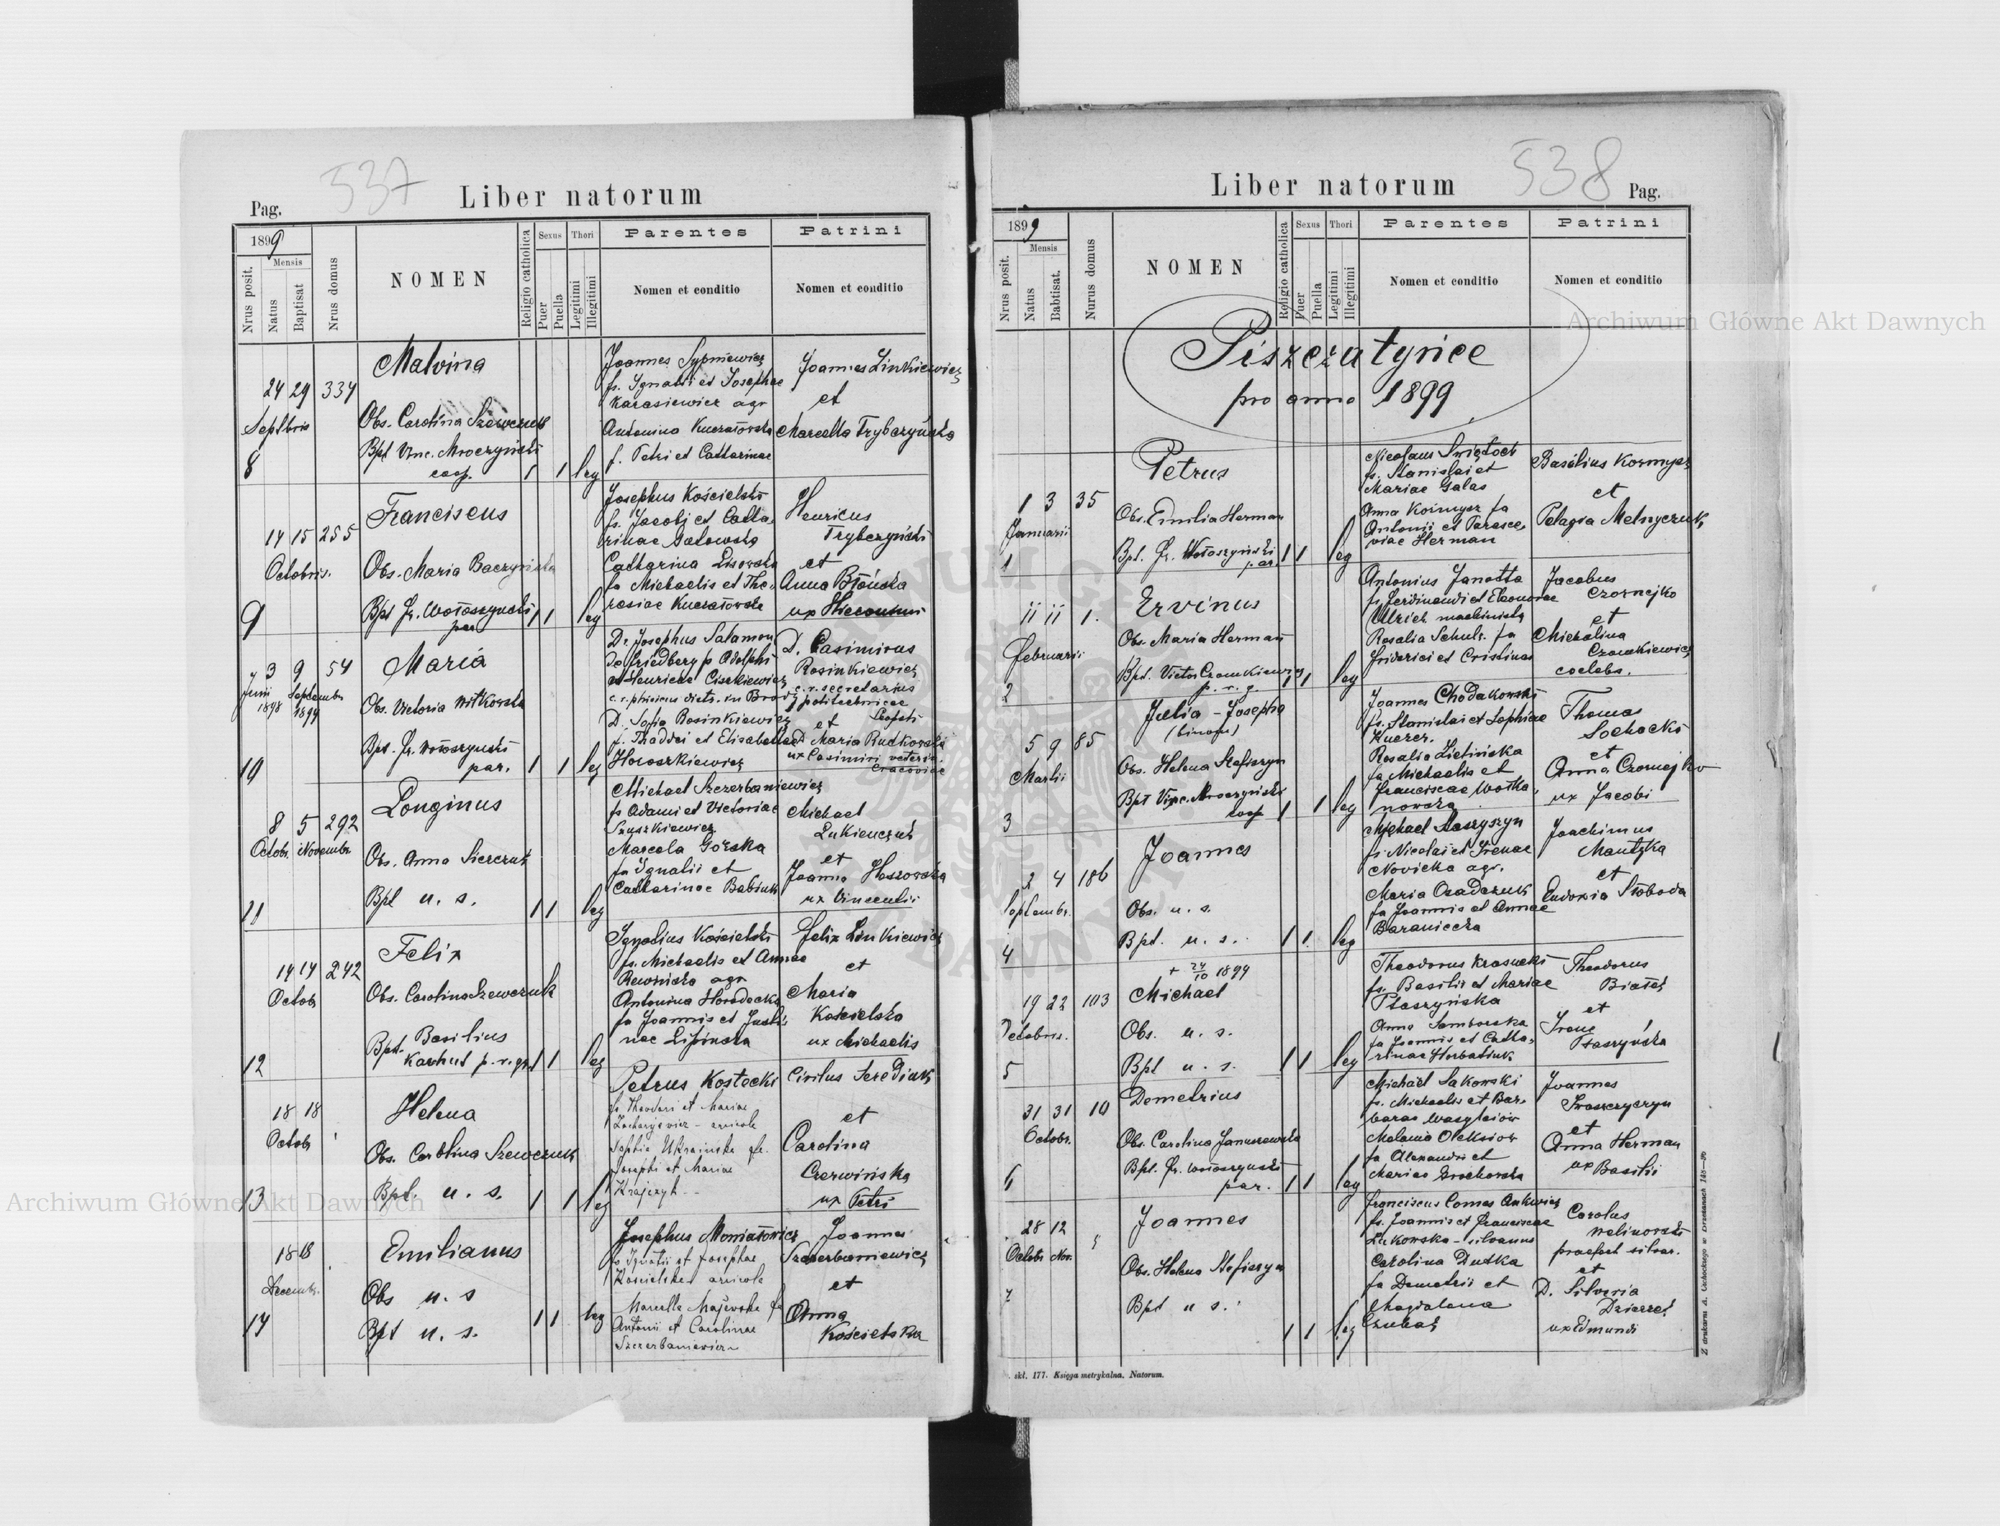 537
Liber natorum
Pag.
1899
Mensis
Nrus posit.
Natus
Baptisat
Nrus domus
NOMEN
Religio catholica
Sexus
Puer
Puella
Thori
Legitimi
Illegitimi
Parentes
Nomen et conditio
Patrini
Nomen et conditio
8
24 29 334
Septbris
Malvina
Obs. Carolina Szewczuk
Bpt Vinc. Mroczyński
coop.
1 1 leg
Joannes Sypniewicz
fs. Ignatii et Josephae
Karasiewicz agr
Antonina
f. Petri et Catharinae
Joannes Linkiewicz
et
Marcella Trybczyńska
9
14 15 255
Octobris.
Franciscus
Obs. Maria Baczyńska
Bpt Fr. Wołoszyński
par
1 1 leg
Josephus Kościelski
fs. Jacobi et Catha-
rinae
Catharina Lisowska
fa Michaelis et The-
resiae
Henricus
Trybczyński
et
Anna Błońska
ux
10
3 9 54
Junii Septembr
1898 1899
Maria
Obs. Victoria Witkowska
Bpt. Fr. Wołoszyński
par.
1 1 leg
Dr. Josephus Salamon
de Friedberg fs Adolphi
et Henricae Ciszkiewicz
D. Sofia Rosinkiewicz
f. Thaddei et Elisabethae
Horoszkiewicz
D. Casimirus
Rosinkiewicz
c. r. secretarius
politechnicae
et
D Maria Rutkowski
ux Casimiri
Cracoviae
11
8 5 292
Octobr. Novembr
Longinus
Obs. Anna Sierczuk
Bpt u. s.
1 1 leg
Michael Szczerbaniewicz
fs Adami et Victoriae
Szuszkiewicz
Marcela Górska
fa Ignatii et
Catharinae Babiuk
Michael
Łukieńczuk
et
Joanna Hoszowska
ux Vincentii
12
14 14 242
Octob
Felix
Obs. Carolina Szewczuk
Bpt. Basilius
Karchut p. r. gr
1 1 leg
Ignatius Kościelski
fs. Michaelis et Annae
Rewniska agr
Antonina Horodecka
fa Joannis et Justi-
nae Lipińska
Felix Linkiewicz
et
Maria
Kościelska
ux Michaelis
13
18 18
Octob
Helena
Obs. Carolina Szewczuk
Bpt. u. s.
1 1 leg
Petrus Kostecki
fs. Theodori et Mariae
Zacharjewicz -
Sophia Ukrainska f.
Josephi et Mariae
Krajczyk
Cirilus Serediuk
et
Carolina
Czerwińska
ux Petri
14
18 18
Decembr.
Emilianus
Obs u. s
Bpt u. s.
1 1 leg
Josephus Moniatowicz
fs Ignatii et Josephae
Kościelska
Marcella Majewska fa
Antonii et Carolinae
Szczerbaniewicz
Joannes
Szczerbaniewicz
et
Anna
Kościelska
538
Liber natorum
Pag.
1899
Mensis
Nrus posit.
Natus
Babtisat.
Nurus domus
NOMEN
Religio catholica
Sexus
Puer
Puella
Thori
Legitimi
Illegitimi
Parentes
Nomen et conditio
Patrini
Nomen et conditio
Piszczatyńce
pro anno 1899
1
1 3 35
Januarii
Petrus
Obs. Emilia Herman
Bpt. Fr. Wołoszyński
par
1 1 leg
Nicolaus Świętoch
fs. Stanislai et
Mariae Galas
Anna Kormysz fa
Antonii et Parasce-
viae Herman
Basilius Kormysz
et
Pelagia Melnyczuk
2
11 11 1.
Februarii
Ervinus
Obs. Maria Herman
Bpt. Victor Cromkiewicz
p. r. g.
1 1 leg
Antonius Janotta
fs Ferdinandi et Eleonorae
Ulrich machinista
Rosalia Schulz fa
Friderici et Cristinae
Jacobus
Czornejko
et
Michalina
Cromkiewicz
coelebs.
3
5 9 85
Martii
Julia - Josepha
(binom)
Obs. Helena Stefiszyn
Bpt Vinc. Mroczyński
coop
1 1 leg
Joannes Chodakowski
fs. Stanislai et Sophiae
Kucer.
Rosalia Zielińska
fa Michaelis et
Franciscae Wołka-
nowska
Thomas
Sochacki
et
Anna Czornejko
ux Jacobi
4
2 4 186
Septembr.
Joannes
Obs. u. s.
Bpt. u. s.
1 1 leg
Michael
fs Nicolai et Irenae
Novicka agr.
Maria Osadczuk
fa Joannis et Annae
Baraniecka
Joachimus
Mantzka
et
Eudoxia Swoboda
5
19 22 103
Octobris.
+ 24/10 1899
Michael
Obs. u. s.
Bpt u. s.
1 1 leg
Theodorus Krasucki
fs. Basilii et Mariae
Ptaszyńska
Anna Samborska
fa Joannis et Catha-
rinae Horbatiuk
Theodorus
Białas
et
Irene
Ptaszyńska
6
31 31 10
Octobr.
Demetrius
Obs. Carolina Januszewska
Bpt. Fr. Wołoszyński
par.
1 1 leg
Michael Sakowski
fs. Michaelis et Bar-
barae Wasyleiów
Melania Oleksiow
fa Alexandri et
Mariae Grochowska
Joannes
Iwaszczyszyn
et
Anna Herman
ux Basilii
7
28 12 5
Octobr Nov.
Joannes
Obs. Helena Stefiszyn
Bpt u s.
1 1 leg
Franciscus Comes Ankwicz
fs. Joannis et Franciscae
Łukowska - silvanus
Carolina Dutka
fa Demetrii et
Magdalena
Carolus
Malinowski
praefect silvar.
et
D. Silveria
ux Edmundi
skł. 177. Księga metrykalna. Natorum.
Archiwum Główne Akt Dawnych
Archiwum Główne Akt Dawnych